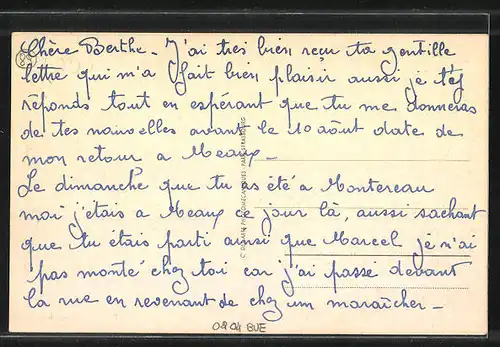 Chère Berthe - J'ai tres bien reçu ta gentille
lettre qui m'a fait bien plaisir aussi je t'ej
réponds tout en espérant que tu me donneras
de tes nouvelles avant le 10 août date de
mon retour a Meaux -
Le dimanche que tu as été a Montereau
moi j'étais a Meaux ce jour là, aussi sachant
que tu étais parti aussi que Marcel je n'ai
pas monté chez toi car j'ai passé devant
la rue en revenant de chez un maraîcher -
0204 BUE